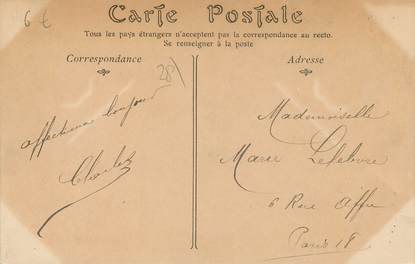 6 €
Carte Postale
Tous les pays étrangers n'acceptent pas la correspondance au recto.
Se renseigner à la poste
Correspondance
28
Adresse
affectueux bonjour
Charles
Mademoiselle
Marie Lefebvre
6 Rue Affre
Paris 18